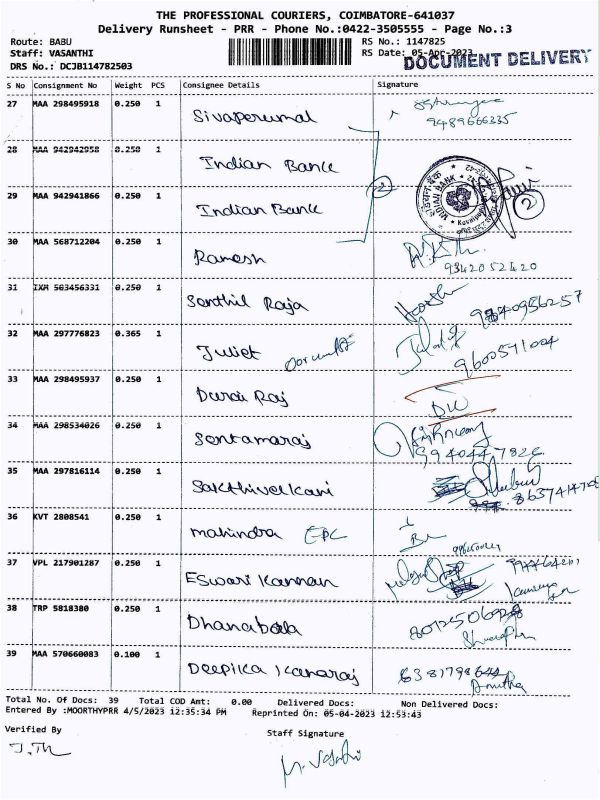 THE PROFESSIONAL COURIERS, COIMBATORE-641037
Delivery Runsheet - PRR - Phone No.:0422-3505555 - Page No.:3
Route: BABU RS No.: 1147825
Staff: VASANTHI RS Date: 05-Apr-2023
DOCUMENT DELIVERY
DRS No.: DCJB114782503
S No Consignment No Weight PCS Consignee Details Signature
27 MAA 298495918 0.250 1 Sivaperumal
9489666335
28 MAA 942942958 0.250 1 Indian Bank
29 MAA 942941866 0.250 1 Indian Bank
2
2
INDIAN BANK
30 MAA 568712204 0.250 1 Ramesh
9342052420
31 IXM 503456331 0.250 1 Senthil Raja
32 MAA 297776823 0.365 1 Juliet
9600571004
33 MAA 298495937 0.250 1 Durai Raj
DW
34 MAA 298534026 0.250 1 Sentamaraj
35 MAA 297816114 0.250 1 Sakthivelkani
36 KVT 2808541 0.250 1 Mahindra EPC
37 VPL 217901287 0.250 1 Eswari Kannan
38 TRP 5818380 0.250 1
39 MAA 570660083 0.100 1 Deepika Kanaraj
Anutha
Total No. Of Docs: 39 Total COD Amt: 0.00 Delivered Docs: Non Delivered Docs:
Entered By :MOORTHYPRR 4/5/2023 12:35:34 PM Reprinted On: 05-04-2023 12:53:43
Verified By Staff Signature